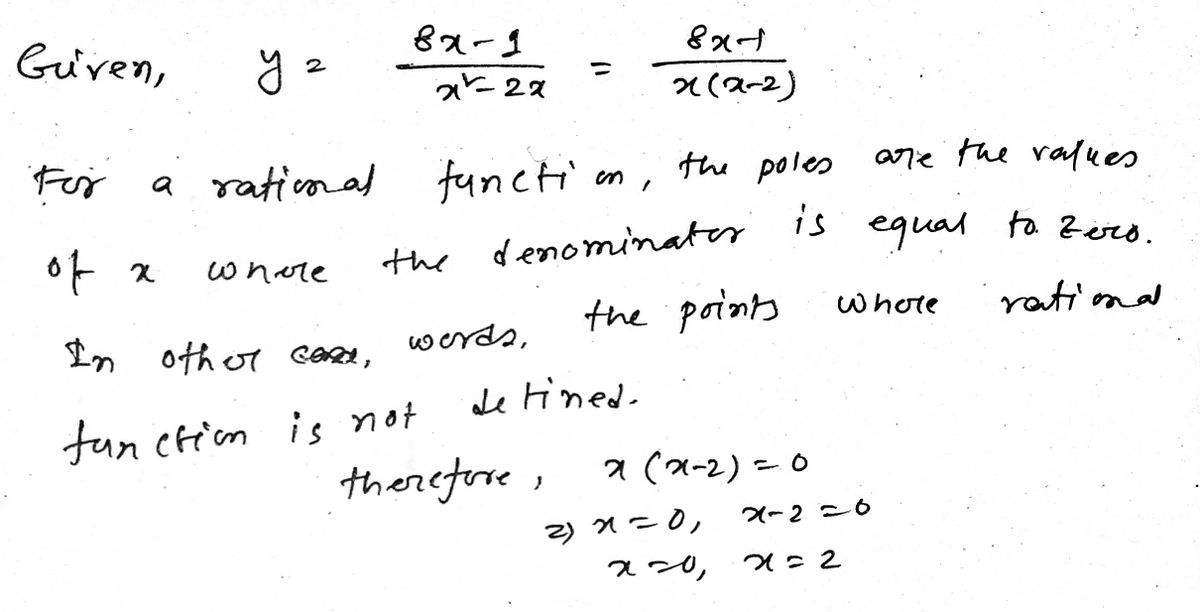 Given, y = 8x-1 / x²-2x = 8x-1 / x(x-2)
For a rational function, the poles are the values
of x where the denominator is equal to zero.
In other case, words, the points where rational
function is not defined.
therefore, x(x-2) = 0
⇒ x = 0, x-2 = 0
x = 0, x = 2